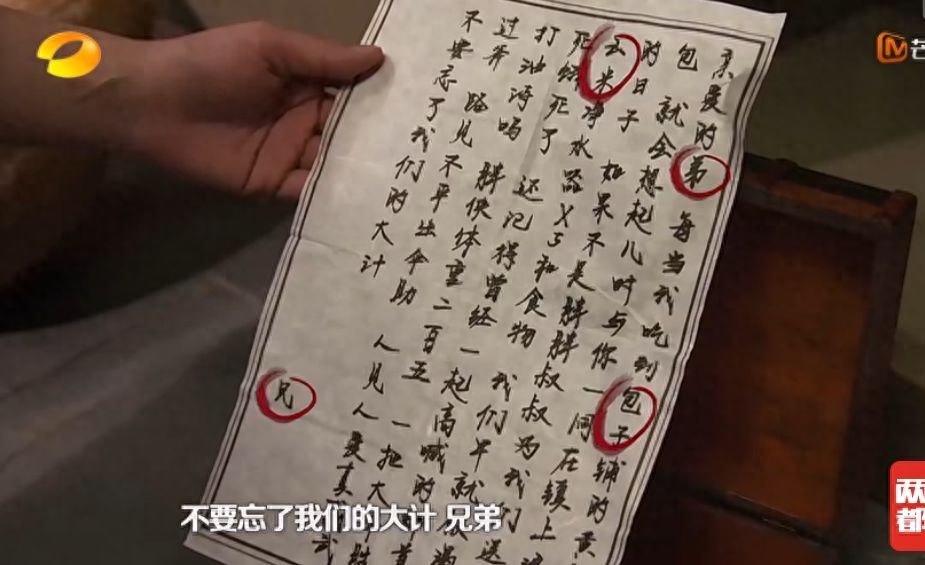 亲爱的弟 每当我吃到包子铺的黄
包 就会想起儿时与你一同在镇上
的日子 如果不是胖胖叔叔为我们送
云米净水器X3和食物 我们早就
死饿死了 还记得曾经一起高喊的
打油诗吗 胖侠体重二百五 一把大
过斧 路见不平出伞助 人见人爱真
不要忘了我们的大计
兄
不要忘了我们的大计 兄弟
芒
两
都